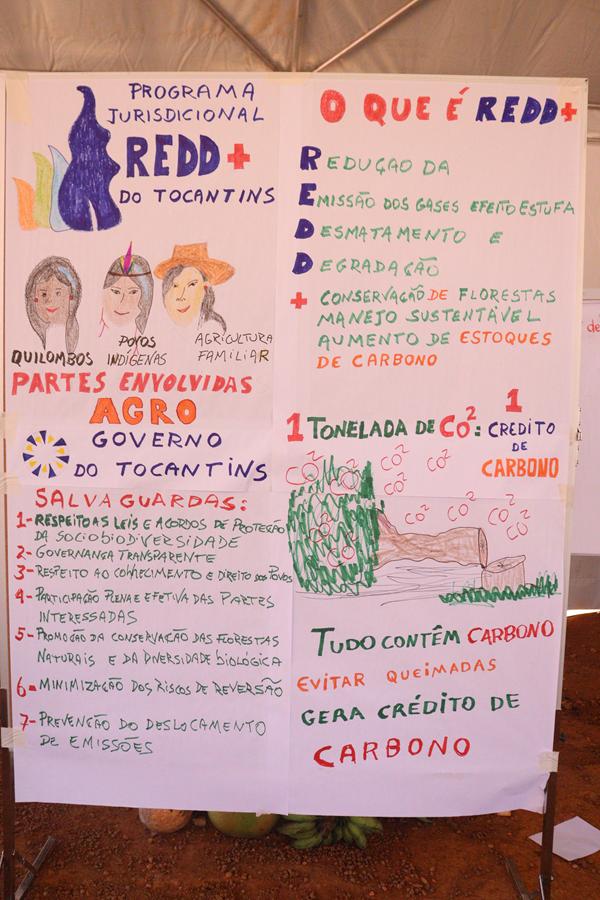 PROGRAMA
JURISDICIONAL
REDD+
DO TOCANTINS
QUILOMBOS
POVOS
INDÍGENAS
AGRICULTURA
FAMILIAR
PARTES ENVOLVIDAS
AGRO
GOVERNO
DO TOCANTINS
SALVAGUARDAS:
1- RESPEITO AS LEIS E ACORDOS DE PROTEÇÃO
DA SOCIOBIODIVERSIDADE
2- GOVERNANÇA TRANSPARENTE
3- RESPEITO AO CONHECIMENTO E DIREITO DOS POVOS
4- PARTICIPAÇÃO PLENA E EFETIVA DAS PARTES
INTERESSADAS
5- PROMOÇÃO DA CONSERVAÇÃO DAS FLORESTAS
NATURAIS E DA DIVERSIDADE BIOLÓGICA
6- MINIMIZAÇÃO DOS RISCOS DE REVERSÃO
7- PREVENÇÃO DO DESLOCAMENTO
DE EMISSÕES
O QUE É REDD+
REDUÇÃO DA
EMISSÃO DOS GASES EFEITO ESTUFA
DESMATAMENTO E
DEGRADAÇÃO
+ CONSERVAÇÃO DE FLORESTAS
MANEJO SUSTENTÁVEL
AUMENTO DE ESTOQUES
DE CARBONO
1 TONELADA DE CO²: 1 CRÉDITO
DE
CARBONO
CO²
CO²
CO²
CO²
CO²
CO²
CO²
CO²
CO²
CO²
CO²
TUDO CONTÊM CARBONO
EVITAR QUEIMADAS
GERA CRÉDITO DE
CARBONO